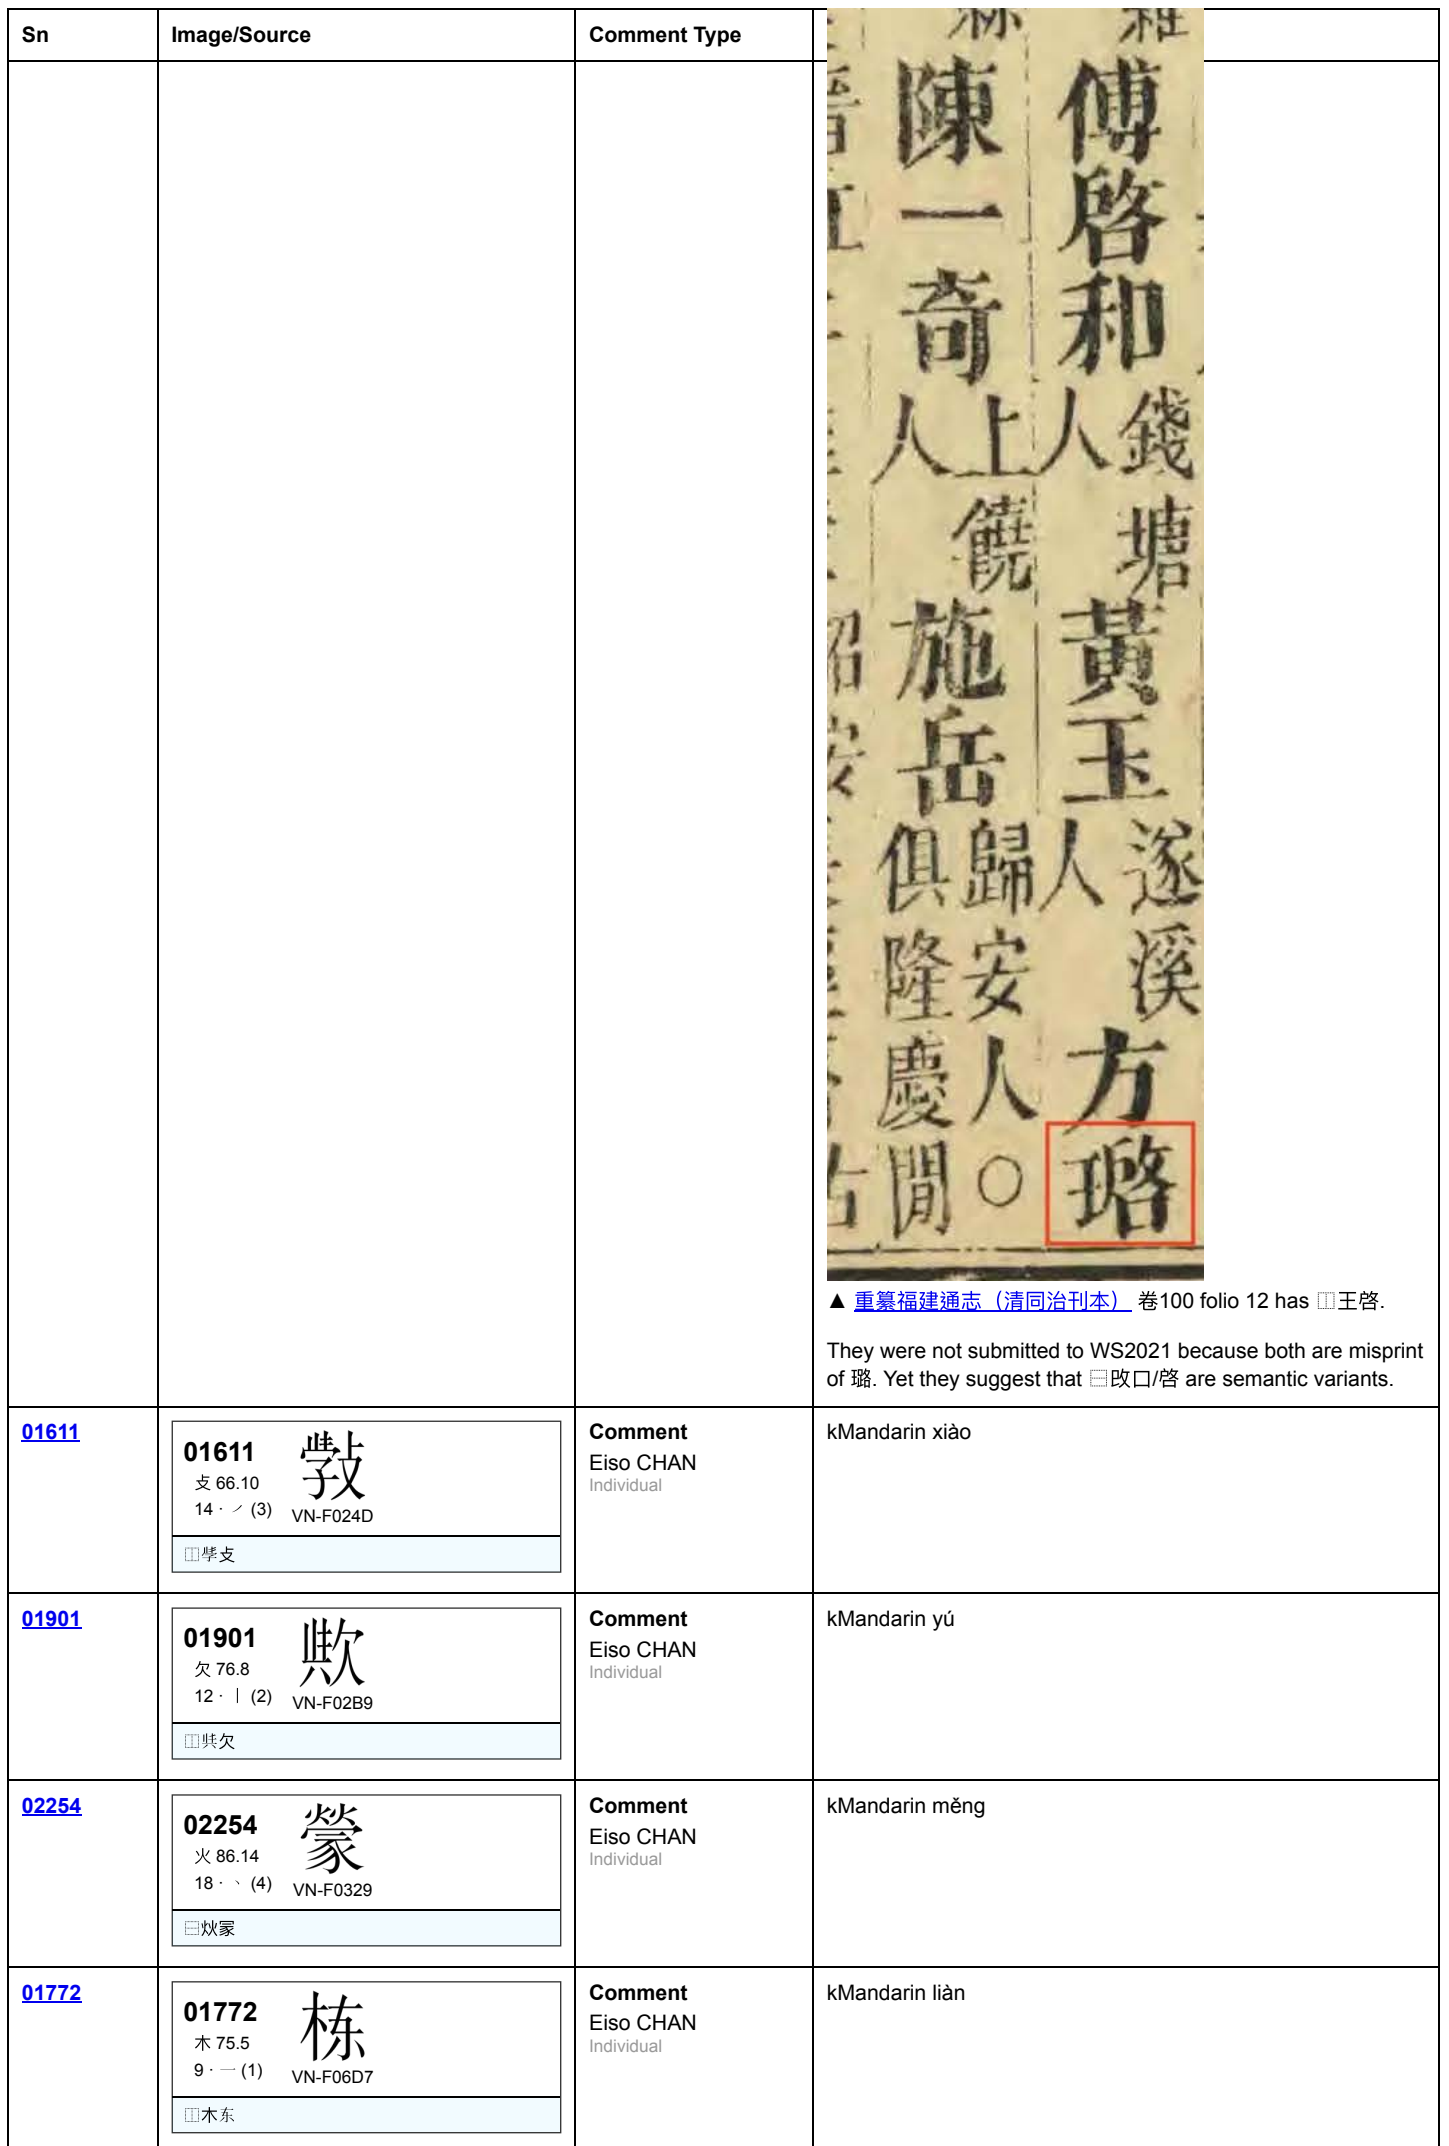 Sn
Image/Source
Comment Type
傅啓和 錢塘人 黃玉 遂溪人 方⿰王啓
陳一奇 上饒人 施岳 歸安人○俱隆慶閒
▲ 重纂福建通志（清同治刊本） 卷100 folio 12 has ⿰王啓.
They were not submitted to WS2021 because both are misprint
of 璐. Yet they suggest that ⿱改口/啓 are semantic variants.
01611
01611
攴 66.10
14 · ㇒ (3)
VN-F024D
Comment
Eiso CHAN
Individual
kMandarin xiào
01901
01901
欠 76.8
12 · 丨 (2)
VN-F02B9
Comment
Eiso CHAN
Individual
kMandarin yú
02254
02254
火 86.14
18 · ㇔ (4)
VN-F0329
⿱炏冡
Comment
Eiso CHAN
Individual
kMandarin měng
01772
01772
木 75.5
9 · 一 (1)
VN-F06D7
Comment
Eiso CHAN
Individual
kMandarin liàn